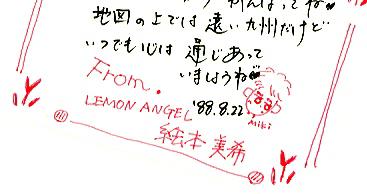 がんばってね♥
地図の上では遠い九州だけど
いつでも心は通じあって
いましょうね♥
From.
LEMON ANGEL '88.8.22
絵本美希
Miki